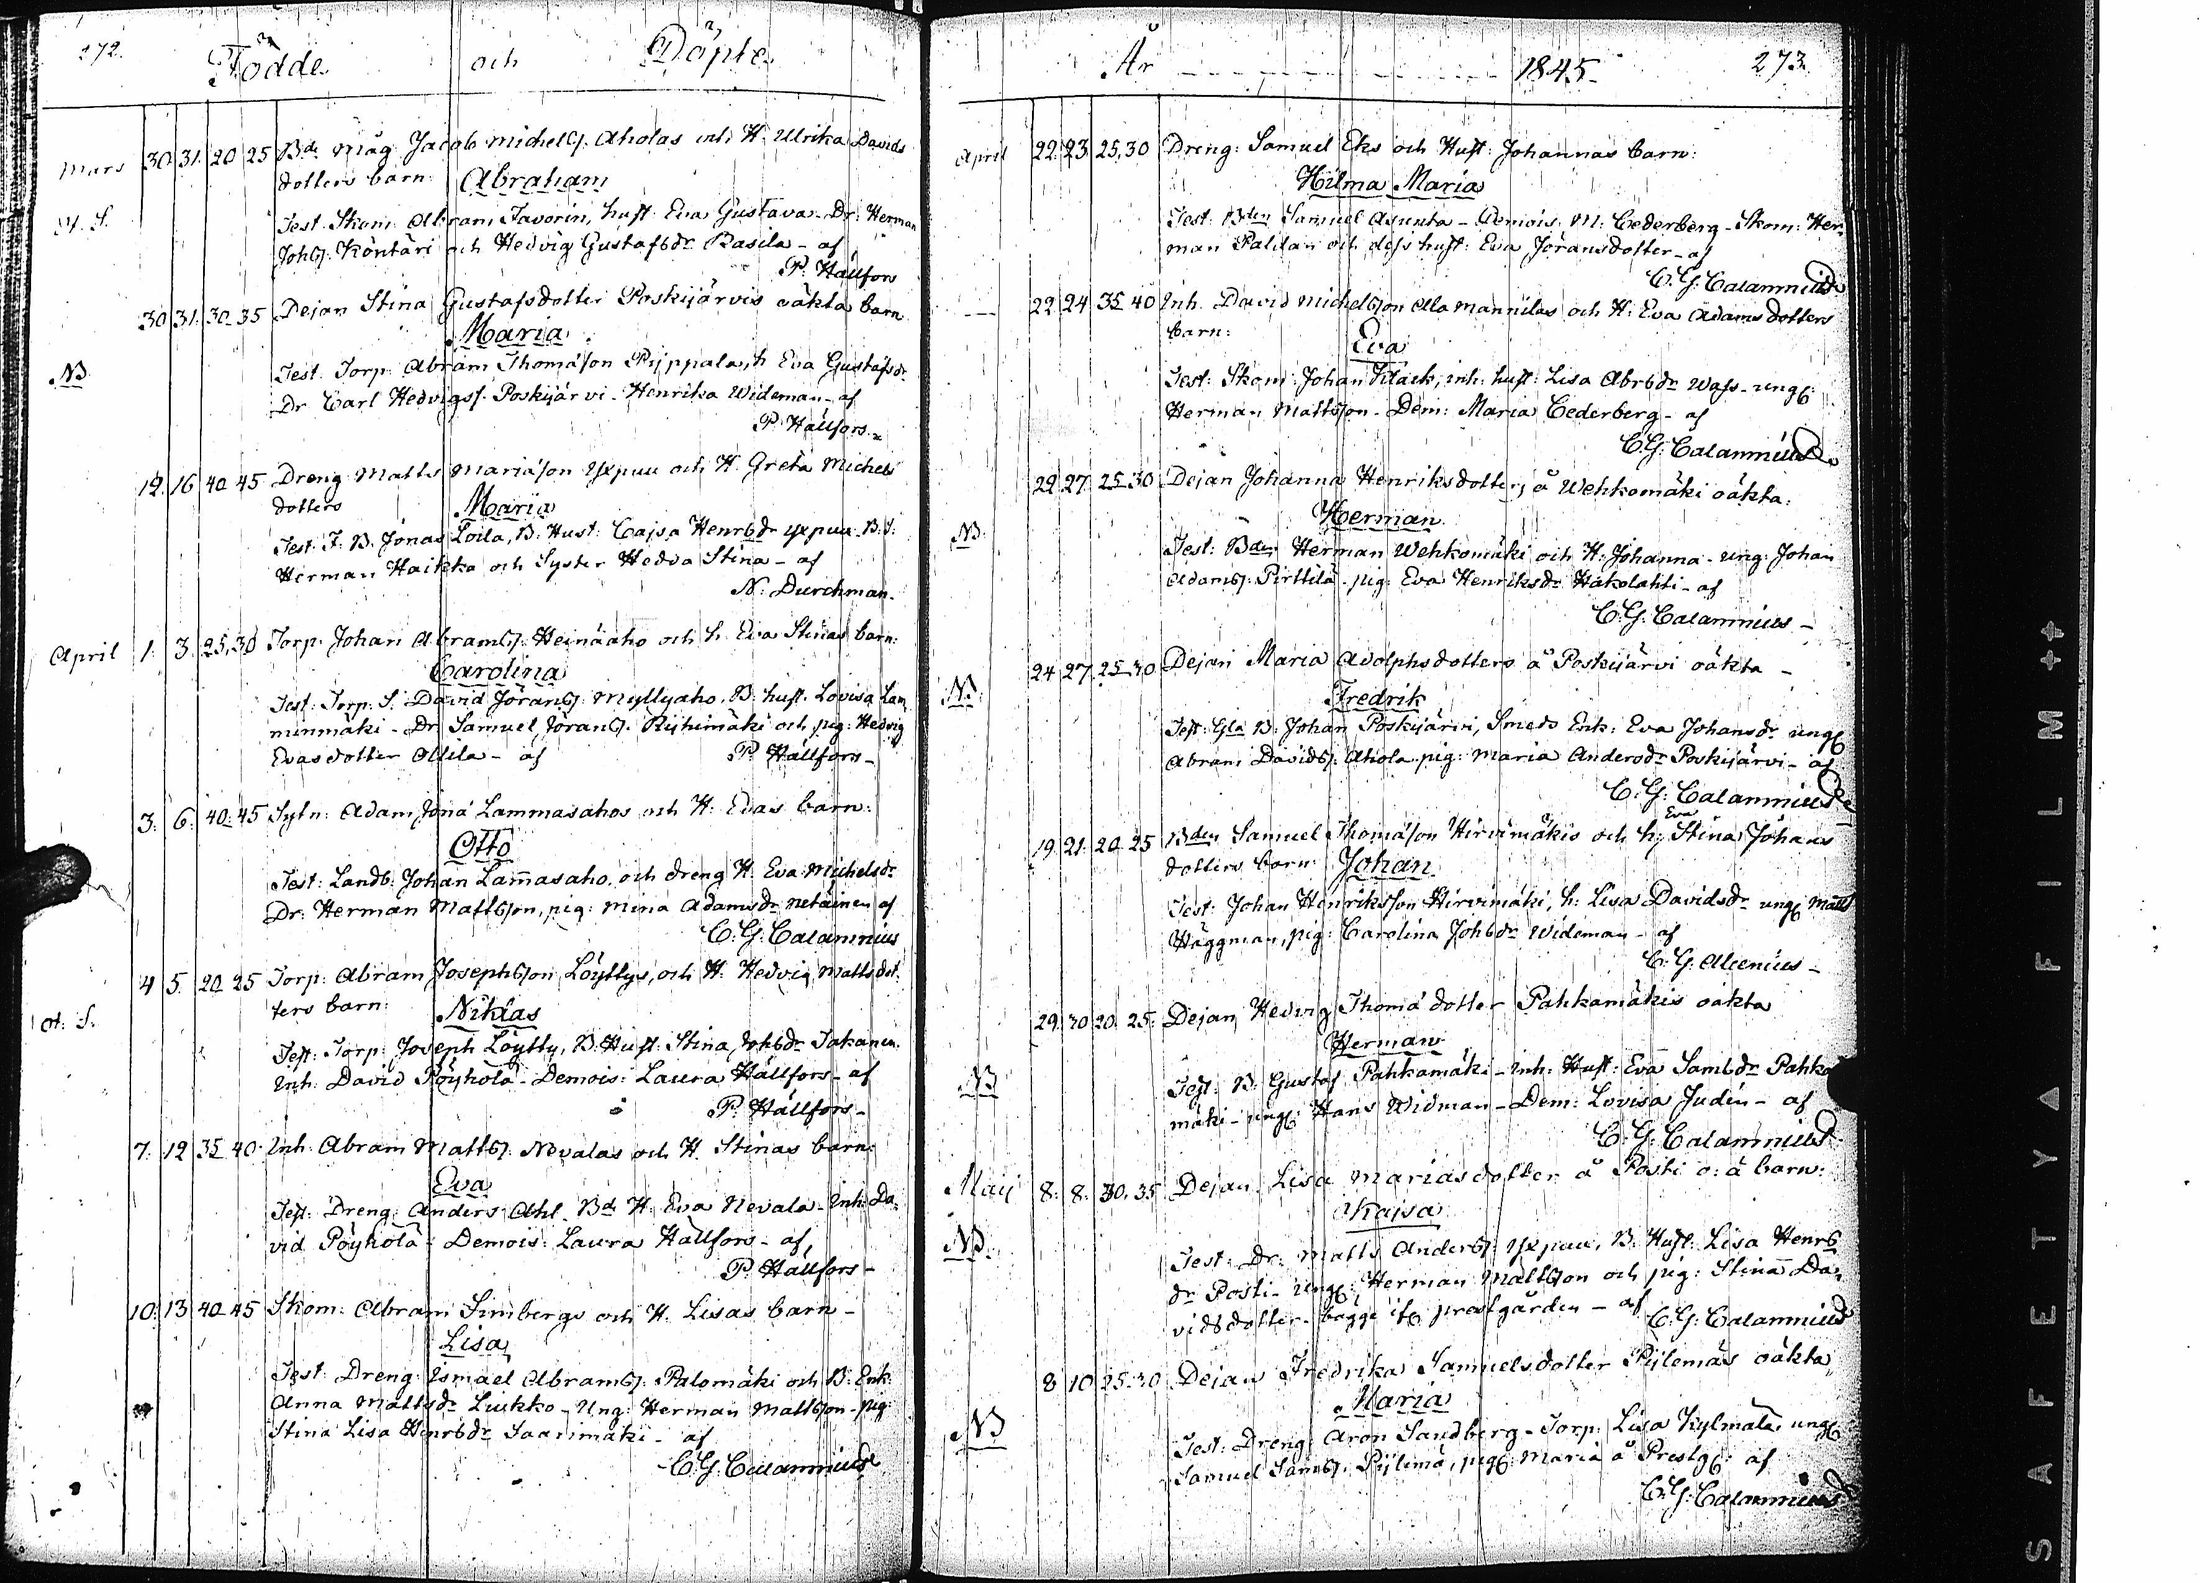 272. Födde och Döpte
Mars 30. 31. 20 25 Bd. måg Jacob Michels. Aholas och H. Ulrika Davids
dotters barn: Abraham
Test. Skom. Abram Favorin, hust. Eva Gustava - Dr. Herman
Johs. Köntäri och Hedvig Gustafsdr Rasila - af
P. Hällfors
30 31. 30 35 Dejan Stina Gustafsdotter Poskijärvis oäkta barn
Maria
NB
Test. Torp. Abram Thomasson Pyppala, h Eva Gustafsdr
Dr Carl Hedvigss. Poskijärvi - Henrika Wideman - af
P. Hällfors
12. 16 40. 45 Dreng Matts Mariason Yxpuu och H. Greta Michels
dotters Maria
Test. F. B. Jonas Loila, B. Hust. Cajsa Henrsdr Yxpuu B.S.
Herman Haikka och Syster Hedva Stina - af
N. Durchman
April 1. 3. 25. 30 Torp. Johan Abrams. Heinäaho och h. Eva Stinas barn:
Carolina
Test. Torp. S. David Jörans. Myllyaho, B. hust. Lovisa Lam
minmäki - Dr Samuel Jörans. Riihimäki och pig: Hedvig
Evasdotter Ollila - af P. Hällfors -
3. 6. 40. 45 Sytn: Adam Jona Lammasahos och H. Evas barn:
Otto
Test: Landb. Johan Lam̄asaho och dreng H. Eva Michelsdr
Dr: Herman Mattsson, pig: Mina Adamsdr Netäinen af
C. G. Calamnius
4 5. 20 25 Torp. Abram Josephsson Löyttys, och H. Hedvig Mattsdot
ters barn: Niklas
Test: Torp. Joseph Löytty, B. Hust. Stina Johsdr
Inh. David Pöyhölä - Demois: Laura Hällfors - af
P. Hällfors -
7. 12 35 40. Inh. Abram Matts. Nevalas och H. Stinas barn:
Eva
Test: Dreng Anders Ahl. Bd. H. Eva Nevala - Inh. Da-
vid Pöyhölä - Demois: Laura Hällfors - af,
P. Hällfors -
10. 13 40. 45 Skom: Abram Simbergs och H. Lisas barn -
Lisa
Test. Dreng Ismael Abrams. Palomäki och B: Enk:
Anna Mattsdr Liukko - Ung: Herman Mattson - pig:
Stina Lisa Henrsdr Saarimäki - af
C. G. Calamnius
År 1845. 273.
April 22. 23 25. 30 Dreng: Samuel Eks och Hust: Johannas barn:
Hilma Maria
Test: Bden Samuel Asunta - Demois: M: Cederberg - Skom: Her-
man Palldan och dess hust: Eva Jöransdotter - af
C. G. Calamnius
22 24 35 40 Inh. David Michelsson Ala Mannilas och H: Eva Adamsdotters
barn: Eva
Test: Skom: Johan Klack, inh: hust: Lisa Abrsdr Wass - ung:
Herman Mattsson - Dem: Maria Cederberg - af
C. G. Calamnius
22 27 25 30 Dejan Johanna Henriksdotters å Wehkomäki oäkta:
Herman
NB.
Test: Bden Herman Wehkomäki och H: Johanna - ung: Johan
Adams: Pirttilä - pig: Eva Henriksdr Hakolahti - af
C. G. Calamnius -
24 27. 25 30 Dejan Maria Adolphsdotters å Poskijärvi oäkta -
Fredrik
NB.
Test: Gla B. Johan Poskijärvi, Smeds Enk: Eva Johansdr ung:
Abram Davids: Ahola - pig: Maria Andersdr Poskijärvi - af
C. G. Calamnius
19 21. 20 25 Bden Samuel Thomasson Hirvimäkis och h: Eva Stina Johans
dotters barn: Johan
Test: Johan Henriksson Hirvimäki, h: Lisa Davidsdr ung: Matts
Häggman, pig: Carolina Johsdr Wideman - af
C. G. Alcenius -
29. 30 20. 25. Dejan Hedvig Thomadotter Pahkamäkis oäkta
Herman
NB
Test: B. Gustaf Pahkamäki - Inh: Hust: Eva Samlsdr Pahka
mäki - ung: Hans Widman - Dem: Lovisa Judén - af
C. G. Calamnius
Maij 8. 8. 30. 35 Dejan Lisa Mariasdotter å Posti o: ä barn:
Kajsa
NB.
Test: Dr. Matts Anders: Yxpuu, B. Hust: Lisa Henrs
dr Posti - Ung: Herman Mattsson och pig: Stina Da-
vidsdotter - bägge ifr. prestgården - af C. G. Calamnius
8 10 25. 30 Dejan Fredrika Samuelsdotter Pylemäs oäkta
Maria
NB
Test: Dreng Aron Sandberg - Torp: Lisa Kylmälä, ung:
Samuel Sams: Pylemä, pig: Maria å Prestg: af
C. G. Calamnius
SAFETY FILM ++